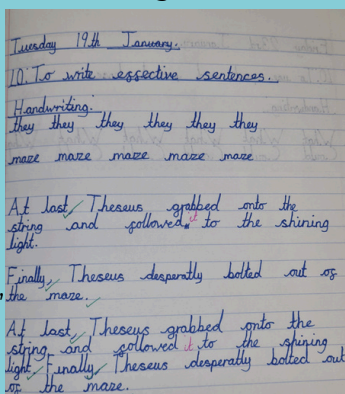 Tuesday 19th January.
L0: To write effective sentences.
Handwriting.
they they they they they they
maze maze maze maze maze
At last, Theseus grabbed onto the
string and followed it to the shining
light.
Finally, Theseus desperatly bolted out of
the maze.
At last, Theseus grabbed onto the
string and followed it to the shining
light. Finally, Theseus desperatly bolted out
of the maze.